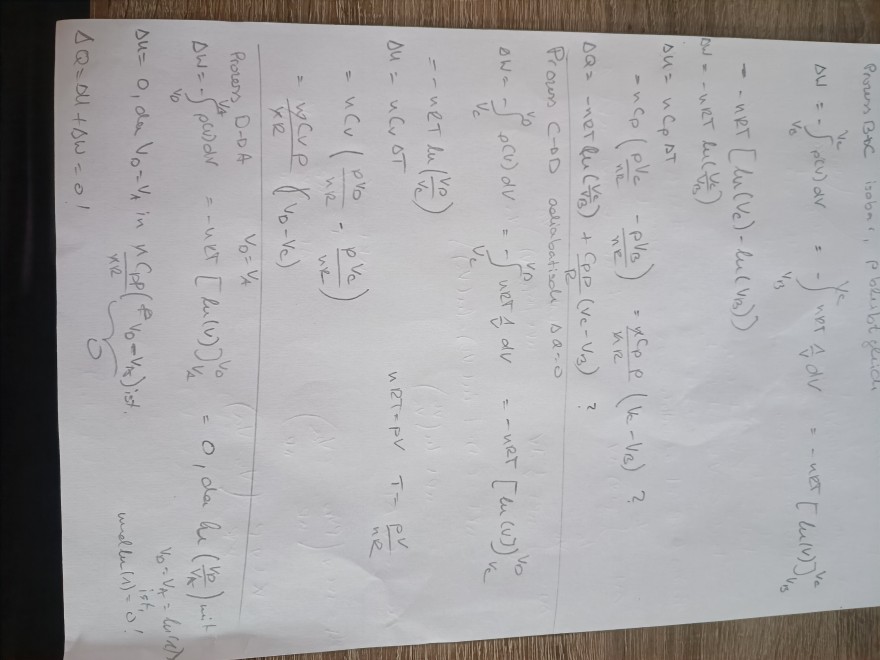 Prozess B→C isobar, p bleibt gleich
ΔW = -∫_{V_B}^{V_C} p(V) dV = -∫_{V_B}^{V_C} nRT 1/V dV = -nRT [ln(V)]_{V_B}^{V_C}
= -nRT [ln(V_C) - ln(V_B)]
ΔW = -nRT ln(V_C/V_B)
ΔU = n C_p ΔT
= n C_p (pV_C/nR - pV_B/nR) = n C_p p/nR (V_C - V_B) ?
ΔQ = -nRT ln(V_C/V_B) + C_p p/R (V_C - V_B) ?
Prozess C→D adiabatisch ΔQ=0
ΔW = -∫_{V_C}^{V_D} p(V) dV = -∫_{V_C}^{V_D} nRT 1/V dV = -nRT [ln(V)]_{V_C}^{V_D}
= -nRT ln(V_D/V_C)
ΔU = n C_V ΔT nRT = pV T = pV/nR
= n C_V (pV_D/nR - pV_C/nR)
= n C_V p/nR (V_D - V_C)
Prozess D→A V_D = V_A
ΔW = -∫_{V_D}^{V_A} p(V) dV = -nRT [ln(V)]_{V_A}^{V_D} = 0, da ln(V_D/V_A) mit
V_D = V_A = ln(1) ist,
und ln(1) = 0!
ΔU = 0, da V_D = V_A in n C_p p/nR (V_D - V_A) ist.
0
ΔQ = ΔU + ΔW = 0!